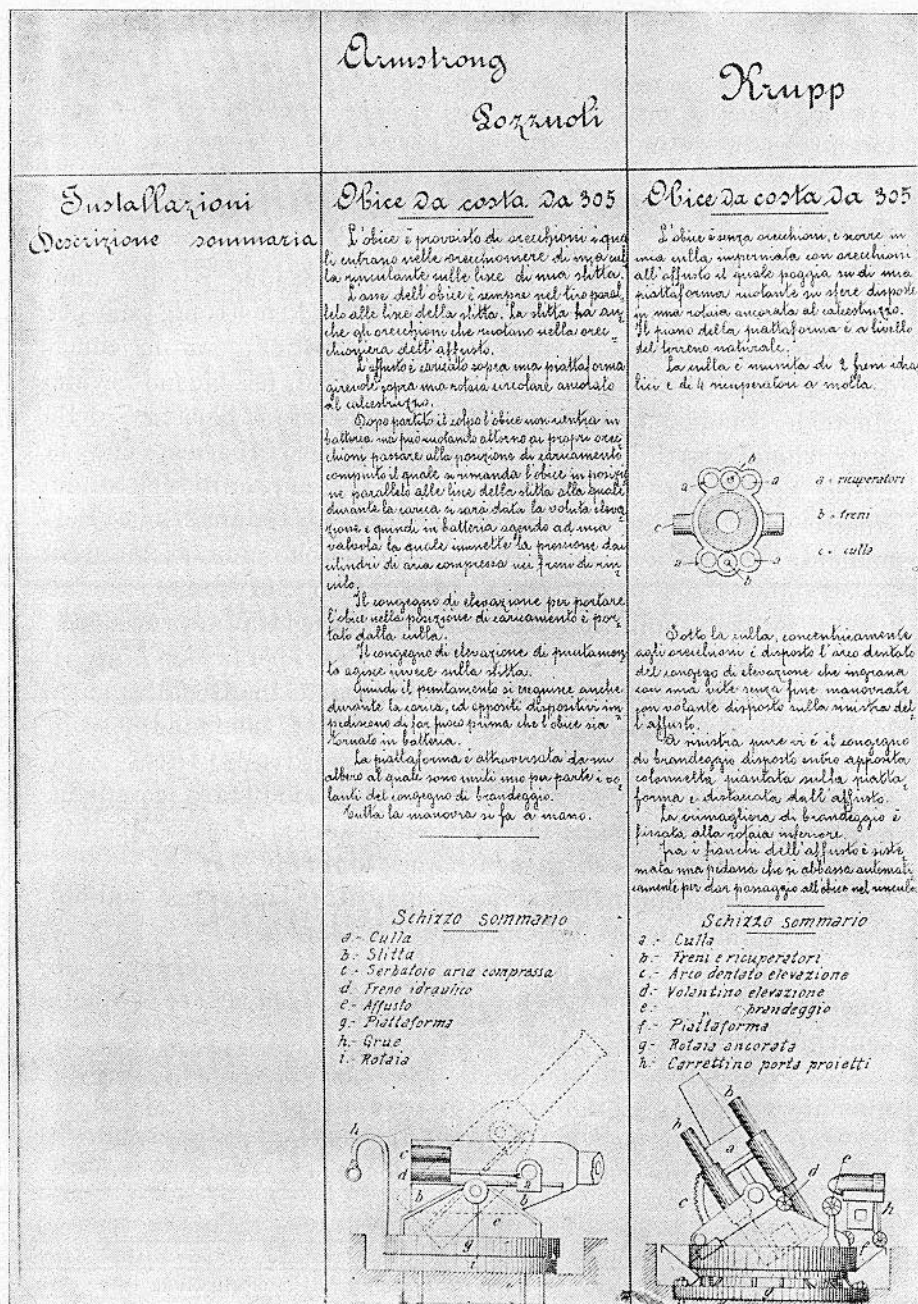 Armstrong
Pozzuoli
Krupp
Installazioni
Descrizione sommaria
Obice da costa da 305
L'obice è provvisto di orecchioni i qua=
li entrano nelle orecchioniere di una cul=
la rinculante sulle lisce di una slitta.
L'asse dell'obice è sempre nel tiro paral=
lelo alle lisce della slitta. La slitta ha an=
che gli orecchioni che ruotano nella orec=
chioniera dell'affusto.
L'affusto è caricato sopra una piattaforma
girevole sopra una rotaia circolare ancorata
al calcestruzzo.
Dopo partito il colpo l'obice non rientra in
batteria ma può ruotando attorno ai propri orec=
chioni passare alla posizione di caricamento
compiuto il quale si rimanda l'obice in posizio=
ne parallelo alle lisce della slitta alla quale
durante la carica si sarà data la voluta eleva=
zione e quindi in batteria agendo ad una
valvola la quale immette la pressione dai
cilindri di aria compressa nei freni di rin=
culo.
Il congegno di elevazione per portare
l'obice nella posizione di caricamento è por=
tato dalla culla.
Il congegno di elevazione di puntamen=
to agisce invece sulla slitta.
Quindi il puntamento si eseguisce anche
durante la carica, ed appositi dispositivi im=
pediscono di far fuoco prima che l'obice sia
tornato in batteria.
La piattaforma è attraversata da un
albero al quale sono uniti uno per parte i vo=
lanti del congegno di brandeggio.
Tutta la manovra si fa a mano.
Schizzo sommario
a.- Culla
b.- Slitta
c.- Serbatoio aria compressa
d. Freno idraulico
e.- Affusto
g.- Piattaforma
h.- Grue
i.- Rotaia
h
c
d
b
a
b
e
g
i
Obice da costa da 305
L'obice è senza orecchioni, e scorre in
una culla impernata con orecchioni
all'affusto il quale poggia su di una
piattaforma ruotante su sfere disposte
in una rotaia ancorata al calcestruzzo.
Il piano della piattaforma è a livello
del terreno naturale.
La culla è munita di 2 freni idrau
lici e di 4 ricuperatori a molla.
b
a
a
a - ricuperatori
b - freni
c
c - culla
a
a
b
Sotto la culla, concentricamente
agli orecchioni è disposto l'arco dentato
del congego di elevazione che ingrana
con una vite senza fine manovrata
con volante disposto sulla sinistra del=
l'affusto.
A sinistra pure vi è il congegno
di brandeggio disposto entro apposita
colonnetta piantata sulla piatta=
forma e distaccata dall'affusto.
La crimagliera di brandeggio è
fissata alla rotaia inferiore.
Fra i fianchi dell'affusto è siste=
mata una pedana che si abbassa automati
camente per dar passaggio all'obice nel rinculo.
Schizzo sommario
a.- Culla
b.- Freni e ricuperatori
c.- Arco dentato elevazione
d.- Volantino elevazione
e.- „ brandeggio
f.- Piattaforma
g- Rotaia ancorata
h.- Carrettino porta proietti
b
h
a
d
e
c
h
f
g